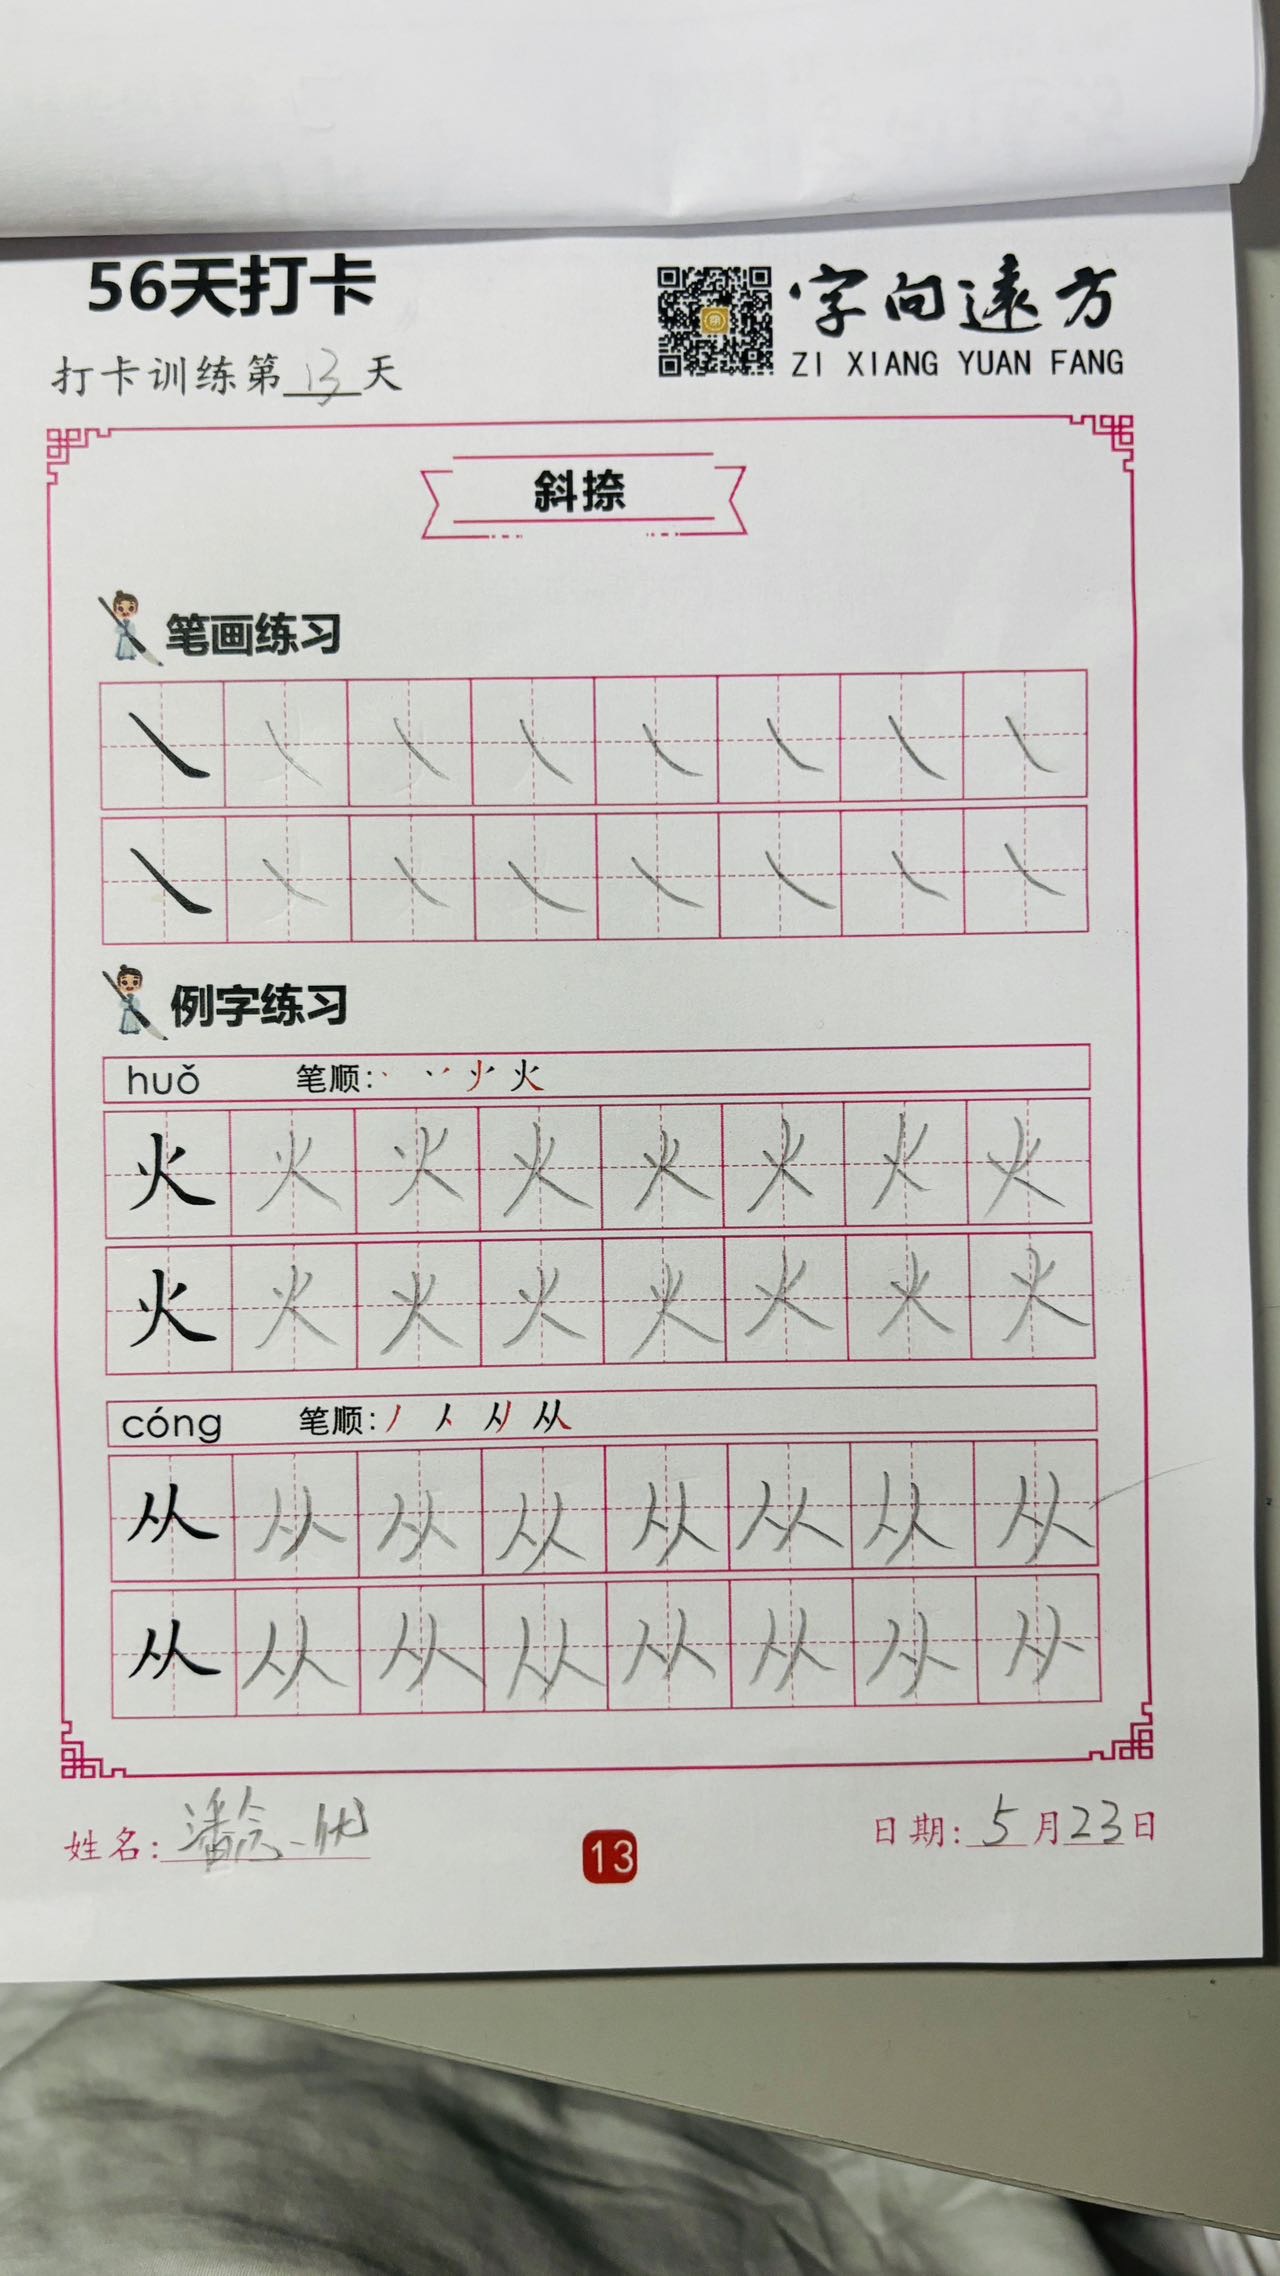 56天打卡
字向遠方
ZI XIANG YUAN FANG
打卡训练第13天
斜捺
笔画练习
㇏ ㇏ ㇏ ㇏ ㇏ ㇏ ㇏ ㇏
㇏ ㇏ ㇏ ㇏ ㇏ ㇏ ㇏ ㇏
例字练习
huǒ 笔顺: 火
火 火 火 火 火 火 火 火
火 火 火 火 火 火 火 火
cóng 笔顺: 丿 人 从
从 从 从 从 从 从 从 从
从 从 从 从 从 从 从 从
姓名: 潘念一
13
日期: 5月23日